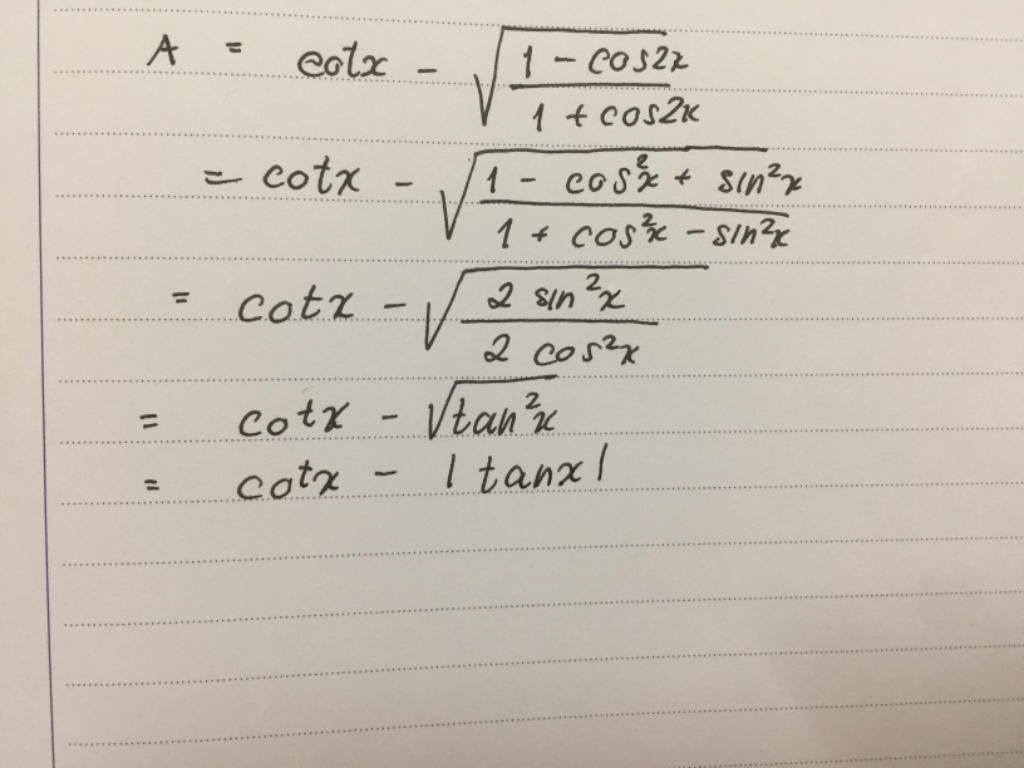 A = cotx - √((1 - cos2x)/(1 + cos2x))
= cotx - √((1 - cos²x + sin²x)/(1 + cos²x - sin²x))
= cotx - √((2 sin²x)/(2 cos²x))
= cotx - √(tan²x)
= cotx - |tanx|